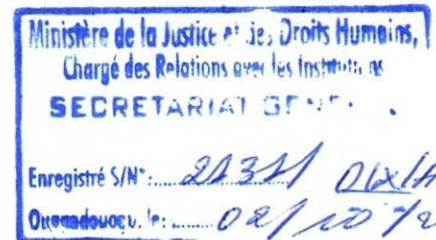 Ministère de la Justice et des Droits Humains,
Chargé des Relations avec les Institutions
SECRETARIAT GENE
Enregistré S/N°:
Ouagadougou, le: 02/10/2